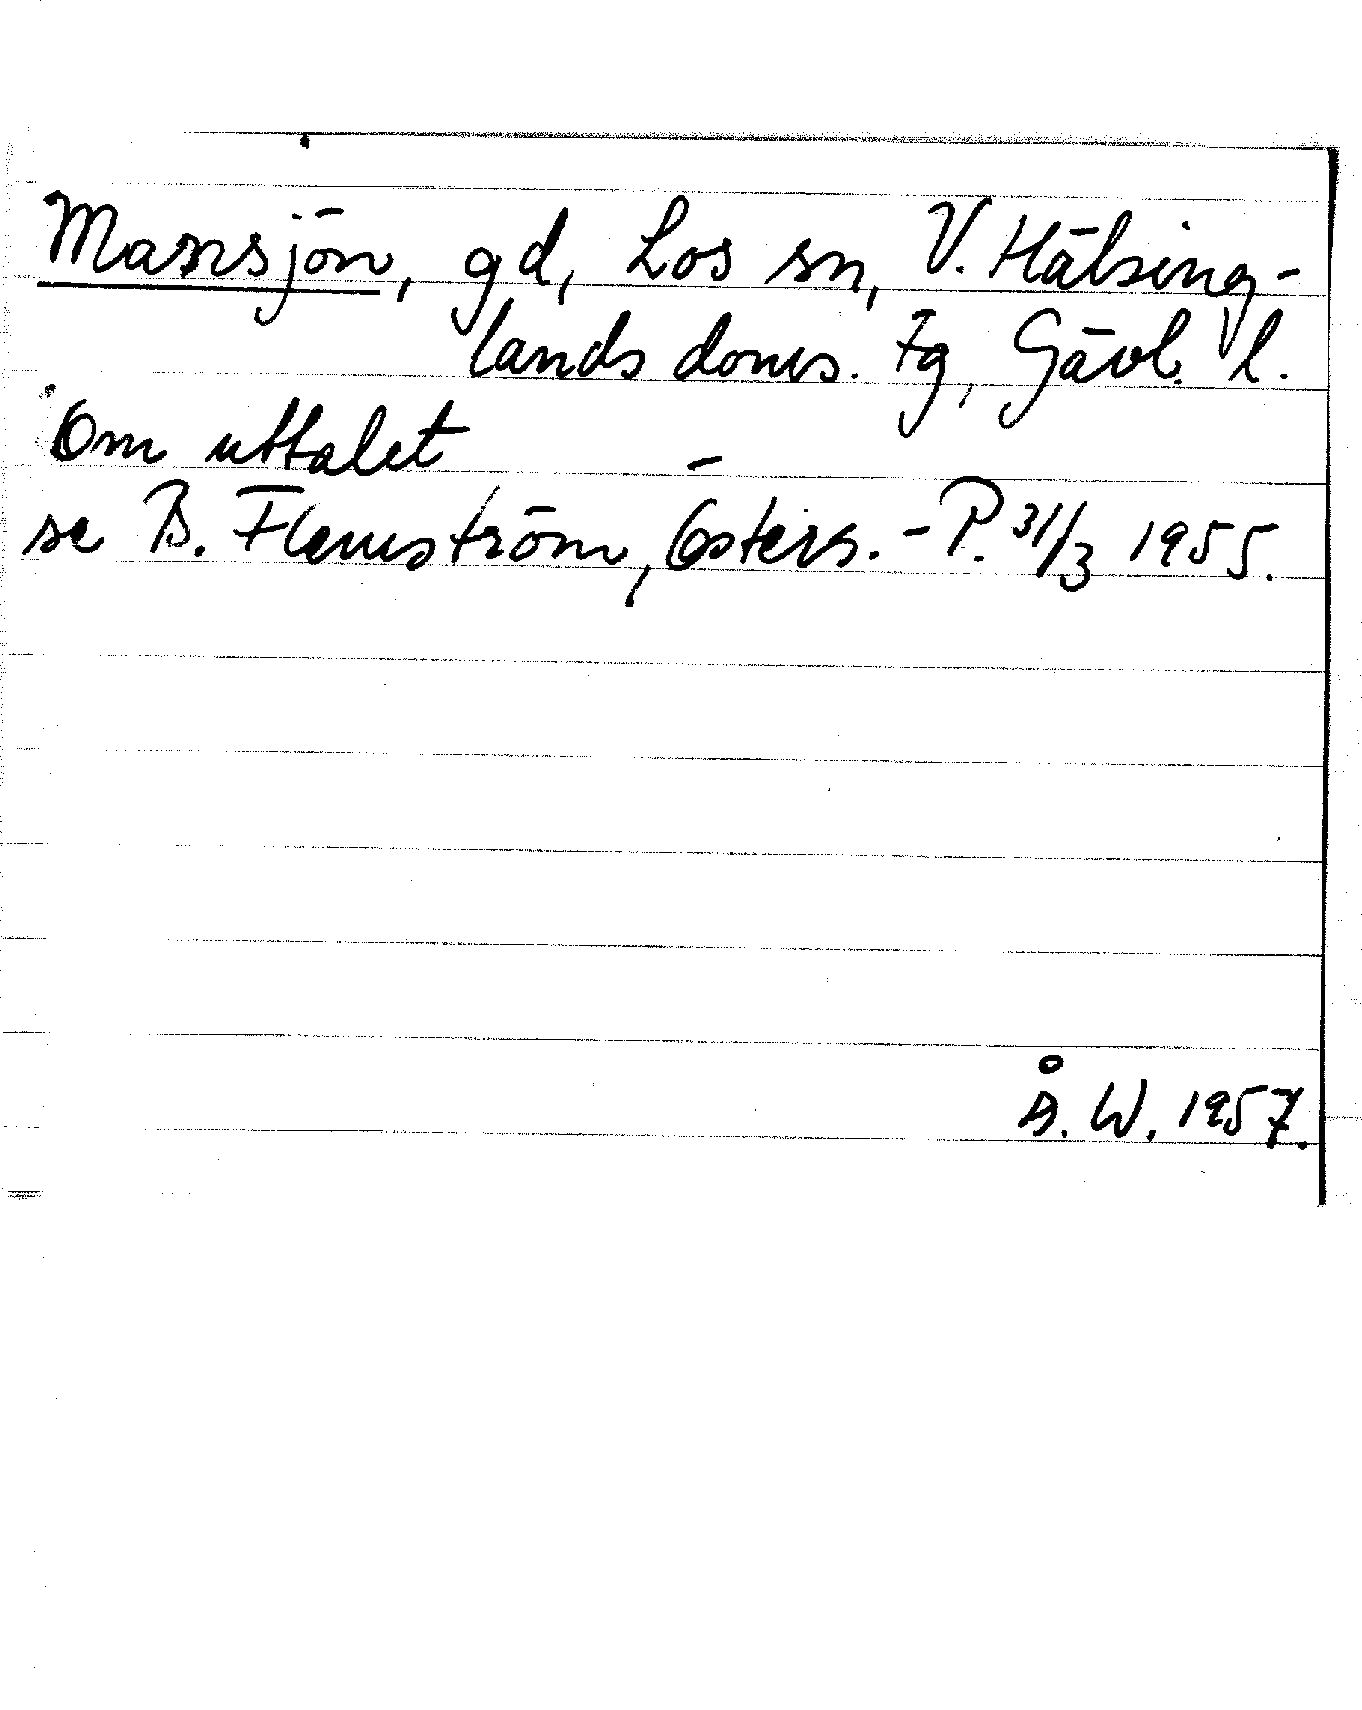 Massjön, gd, Los sn, V. Hälsing-
lands doms. Fg, Gävl. l.
Om uttalet
se B. Flemström, Östers.-P. 31/3 1955.
Å. W. 1957.